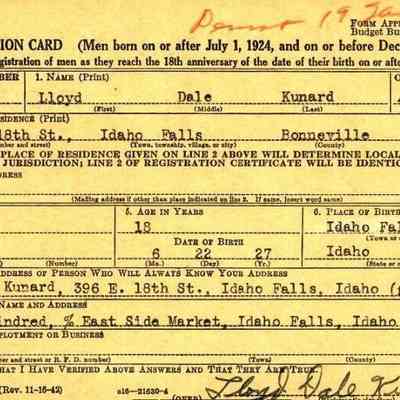 19 Ja
FORM APP
Budget Bu
ION CARD (Men born on or after July 1, 1924, and on or before Dec
gistration of men as they reach the 18th anniversary of the date of their birth on or afte
BER 1. NAME (Print)
Lloyd Dale Kunard
(First) (Middle) (Last)
SIDENCE (Print)
18th St., Idaho Falls Bonneville
mber and street) (Town, township, village, or city) (County)
PLACE OF RESIDENCE GIVEN ON LINE 2 ABOVE WILL DETERMINE LOCAL
JURISDICTION; LINE 2 OF REGISTRATION CERTIFICATE WILL BE IDENTIC
DRESS
(Mailing address if other than place indicated on line 2. If same, insert word same)
5. AGE IN YEARS 6. PLACE OF BIRTH
18 Idaho Fal
(Town or
DATE OF BIRTH
6 22 27 Idaho
(Number) (Mo.) (Day) (Yr.) (State or
DDRESS OF PERSON WHO WILL ALWAYS KNOW YOUR ADDRESS
Kunard, 396 E. 18th St., Idaho Falls, Idaho (
NAME AND ADDRESS
indred, % East Side Market, Idaho Falls, Idaho
PLOYMENT OR BUSINESS
ber and street or R. F. D. number) (Town) (County)
HAT I HAVE VERIFIED ABOVE ANSWERS AND THAT THEY ARE TRUE.
(Rev. 11-16-42) 16—21630-4 Lloyd Dale Ku
(OVER)